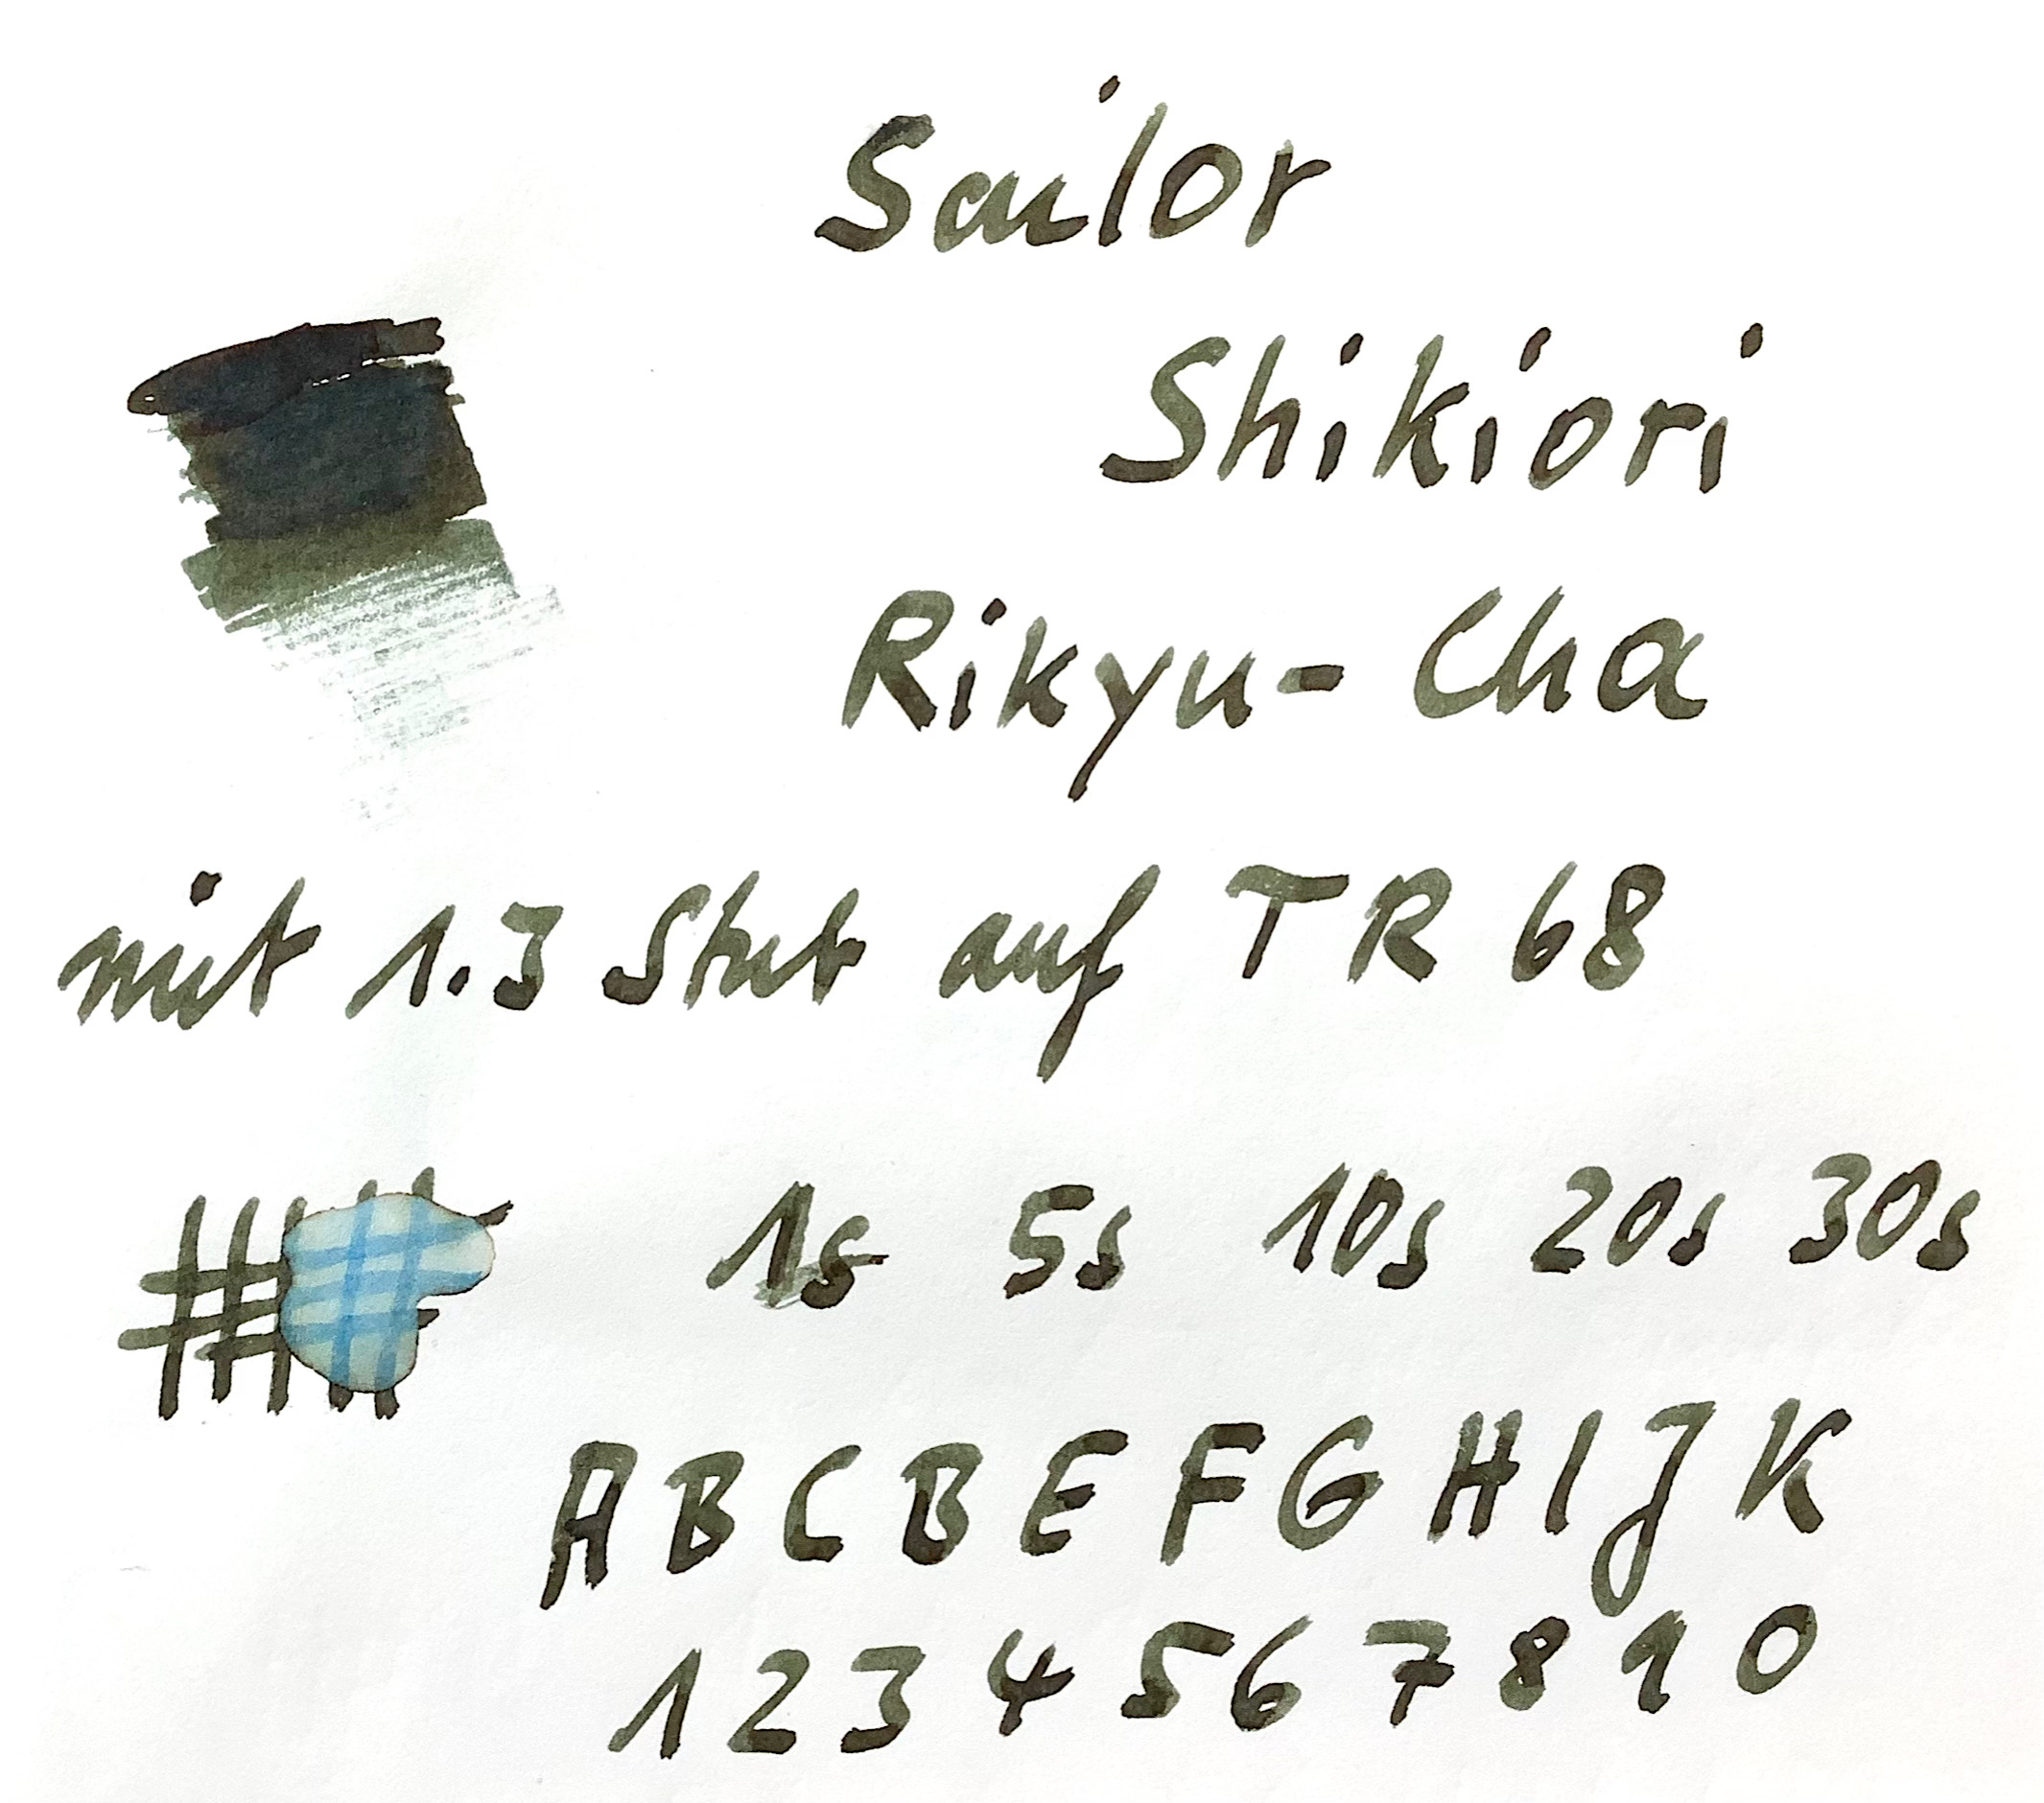 Sailor
Shikiori
Rikyu-Cha
mit 1.3 Stub auf TR 68
1s 5s 10s 20s 30s
A B C B E F G H I J K
1 2 3 4 5 6 7 8 9 0